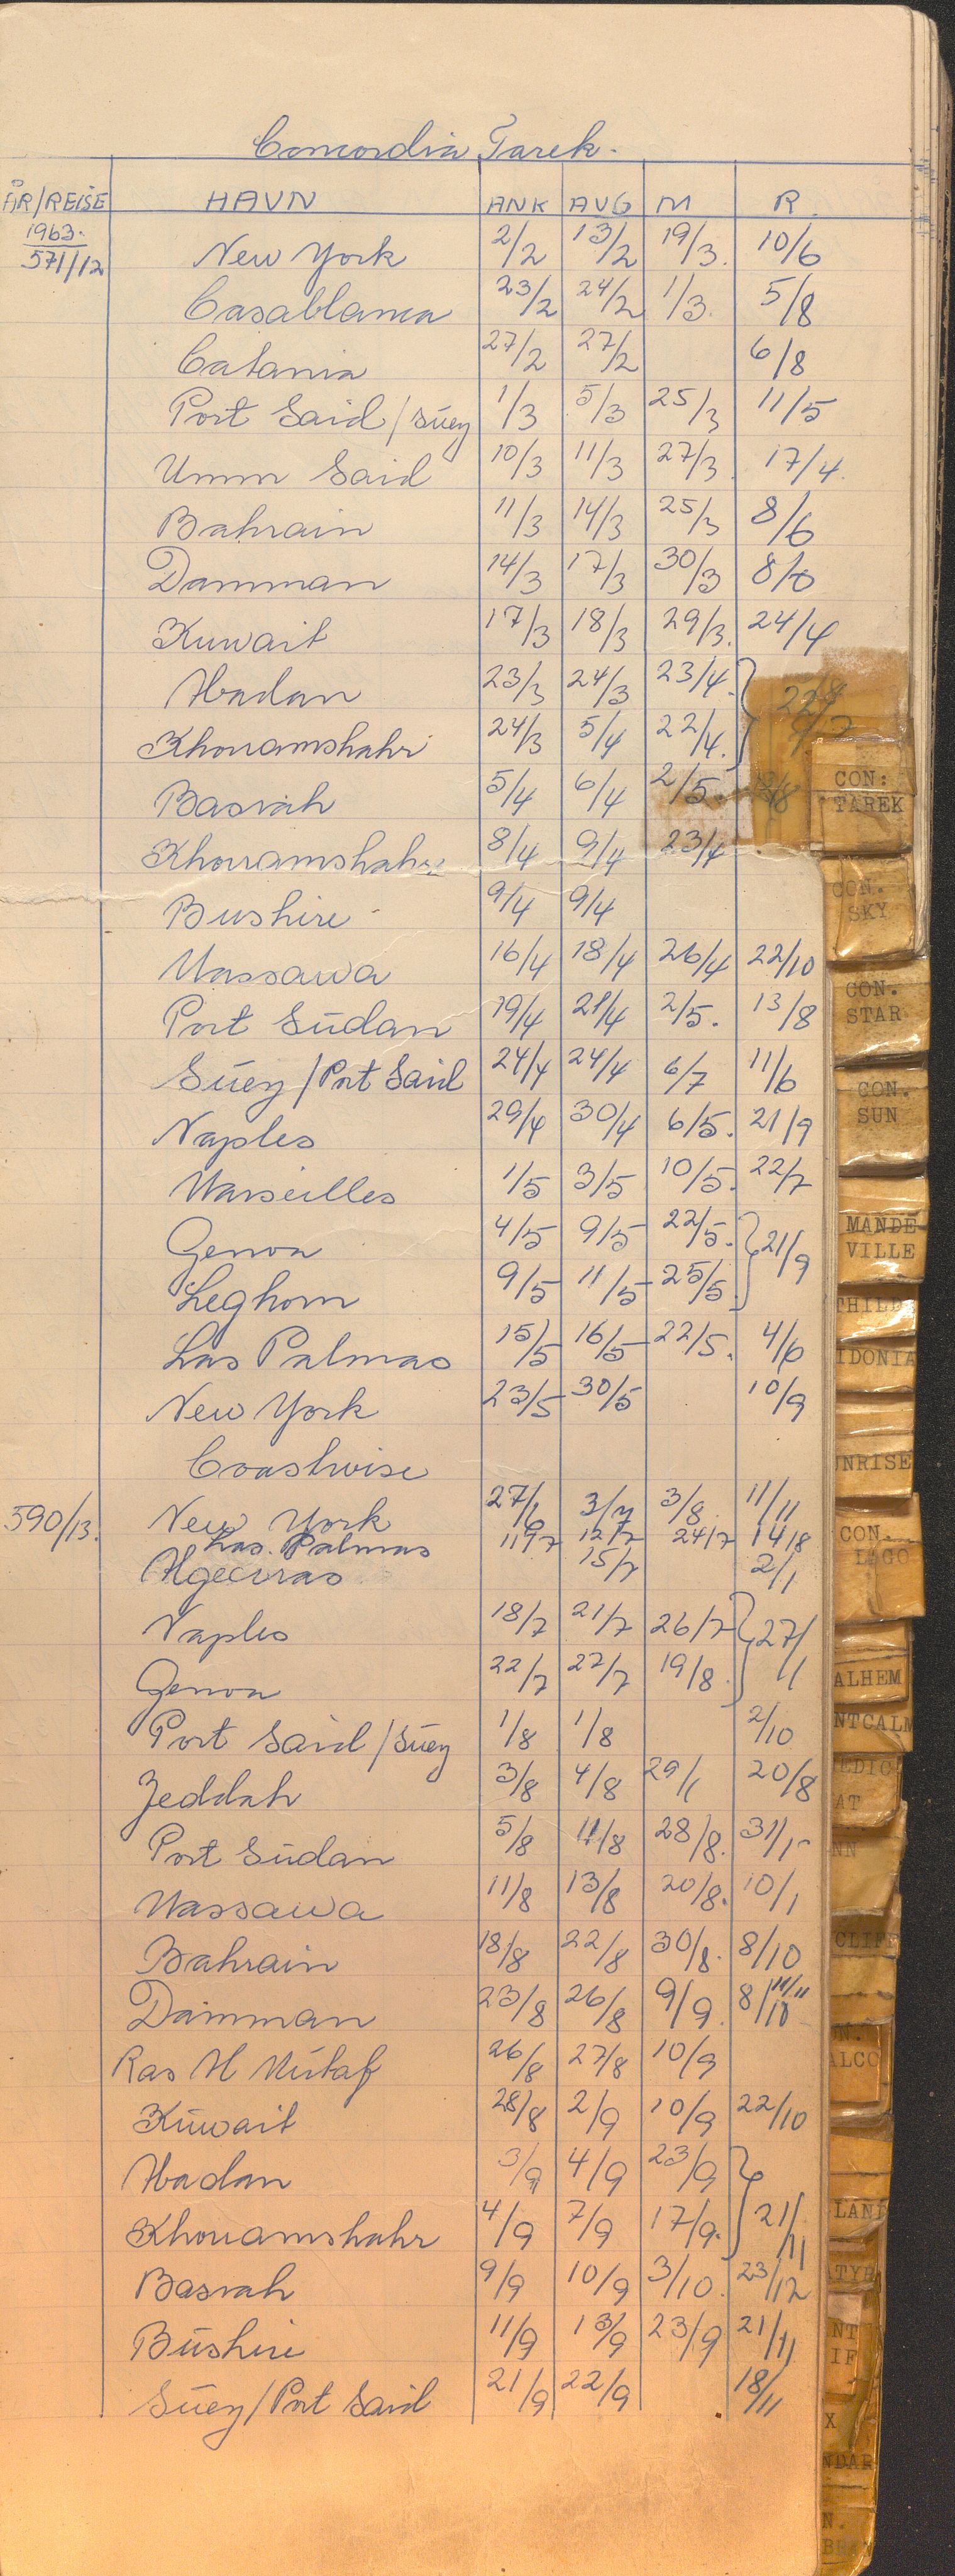 Concordia Tarek.
ÅR/REISE HAVN ANK AVG M R.
1963.
571/12 New York 2/2 13/2 19/3. 10/6
Casablanca 23/2 24/2 1/3. 5/8
Catania 27/2 27/2 6/8
Port Said/Suey 1/3 5/3 25/3 11/5
Umm Said 10/3 11/3 27/3. 17/4.
Bahrain 11/3 14/3 25/3 8/6
Damman 14/3 17/3 30/3 8/6
Kuwait 17/3 18/3 29/3. 24/4
Abadan 23/3 24/3 23/4.
Khorramshahr 24/3 5/4 22/4.
Basrah 5/4 6/4 2/5.
Khorramshahr 8/4 9/4 23/4
Bushire 9/4 9/4
Massawa 16/4 18/4 26/4 22/10
Port Sudan 19/4 21/4 2/5. 13/8
Suey/Port Said 24/4 24/4 6/7 11/6
Naples 29/4 30/4 6/5. 21/9
Marseilles 1/5 3/5 10/5. 22/7
Genoa 4/5 9/5 22/5. } 21/9
Leghorn 9/5 11/5 25/5
Las Palmas 15/5 16/5 22/5. 4/6
New York 23/5 30/5 10/9
Coastwise
590/13. New York 27/6 3/7 3/8. 11/11
Las. Palmas 11/7 12/7 24/7 14/8
Algeciras 15/7 2/1
Naples 18/7 21/7 26/7 } 27/11
Genoa 22/7 27/7 19/8.
Port Said/Suey 1/8 1/8 2/10
Jeddah 3/8 4/8 29/1 20/8
Port Sudan 5/8 11/8 28/8. 31/1
Massawa 11/8 13/8 20/8. 10/1
Bahrain 18/8 22/8 30/8. 8/10
Damman 23/8 26/8 9/9. 8/10 11/11
Ras Al Mishaf 26/8 27/8 10/9
Kuwait 28/8 2/9 10/9 22/10
Abadan 3/9 4/9 23/9 }
Khorramshahr 4/9 7/9 17/9. 21/11
Basrah 9/9 10/9 3/10. 23/12
Bushire 11/9 13/9 23/9 21/11
Suey/Port Said 21/9 22/9 18/11
CON:
TAREK
CON.
SKY
CON.
STAR
CON.
SUN
MANDE
VILLE
THILD
IDONIA
UNRISE
CON.
LAGO
ALHEM
NTCALM
EDIC
AT
NN
CLIF
N.
ALCO
LAND
ATYR
NT
IF
X
NDAR
N.